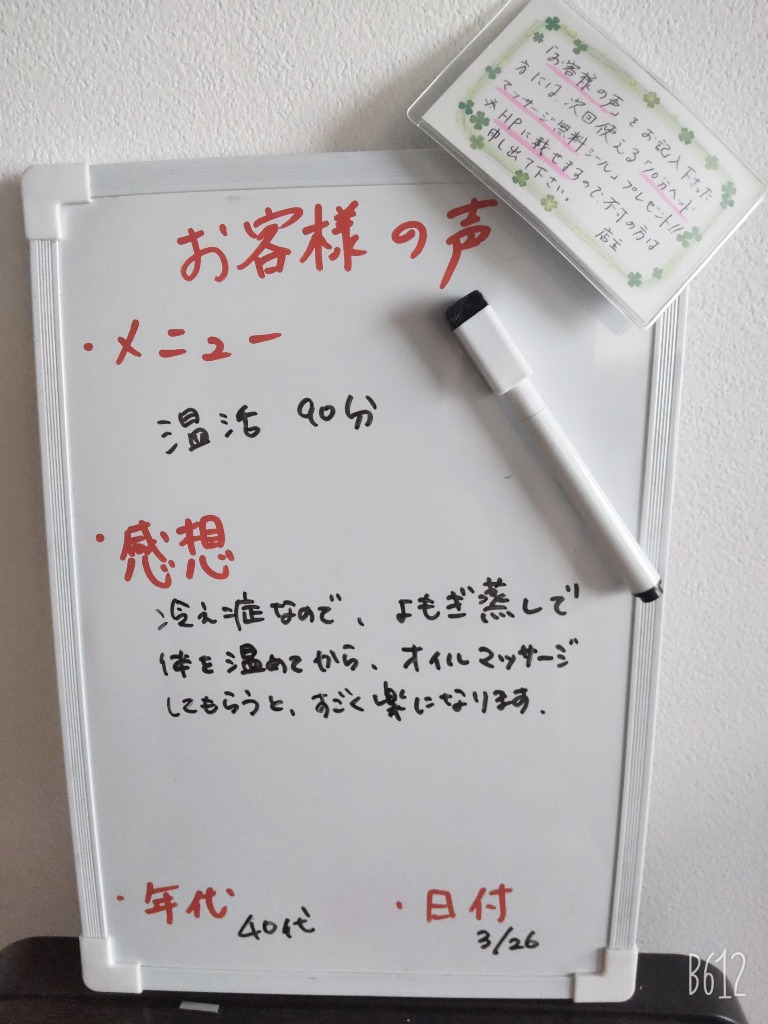 「お客様の声」をお記入下さった
方には、次回使える「10分ヘッド
マッサージ無料シール」プレゼント!!
※HPに載せするので、不可の方は
申し出て下さい。
店主
お客様の声
・メニュー
温活 90分
・感想
冷え症なので、よもぎ蒸しで
体を温めてから、オイルマッサージ
してもらうと、すごく楽になります.
・年代
40代
・日付
3/26
B612